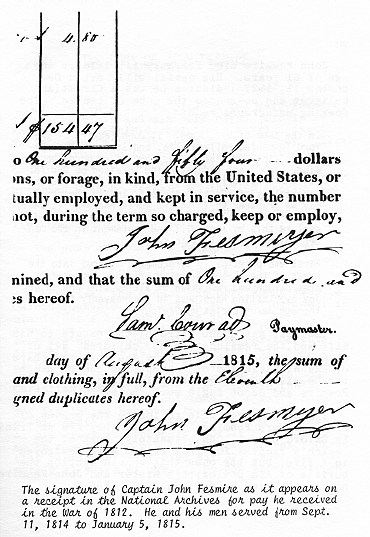 4. 80
$154 47
o One hundred and fifty four dollars
ons, or forage, in kind, from the United States, or
tually employed, and kept in service, the number
not, during the term so charged, keep or employ,
John Fesmeyer
nined, and that the sum of One hundred and
es hereof.
Saml. Conrad Paymaster.
day of August 1815, the sum of
and clothing, in full, from the Eleventh
gned duplicates hereof.
John Fesmeyer
The signature of Captain John Fesmire as it appears on
a receipt in the National Archives for pay he received
in the War of 1812. He and his men served from Sept.
11, 1814 to January 5, 1815.